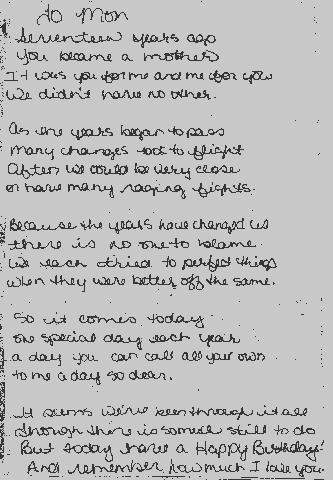 To Mom
Seventeen years ago
You became a mother
It was you for me and me for you
We didn't have no other.
As the years began to pass
Many changes took to flight
Often we could be very close
or have many raging fights.
Because the years have changed us
there is no one to blame
We each tried to perfect things
when they were better off the same.
So it comes today
one special day each year
a day you can call all your own
to me a day so dear.
It seems we've been through it all
though there is so much still to do
But today have a Happy Birthday!
And remember how much I love you